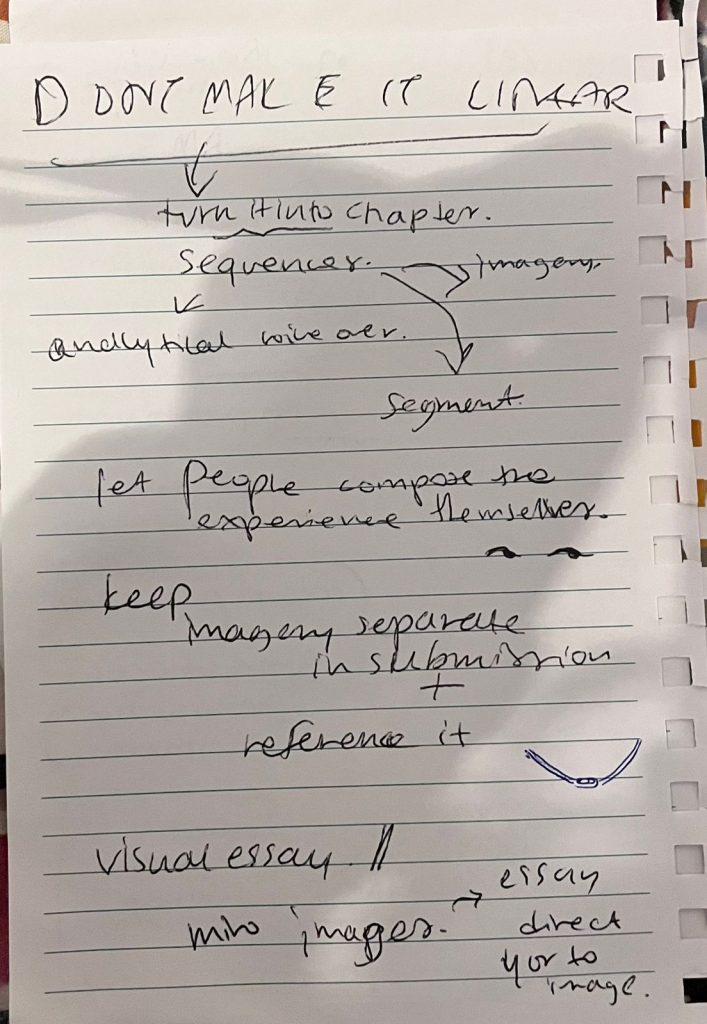 D DONT MAKE IT LINEAR
turn it into chapter.
sequences. → imagery.
analytical voice over.
segment.
let people compose the
experience themselves.
keep
imagery separate
in submission
+
reference it
visual essay. //
miro images. → essay
direct
to
image.